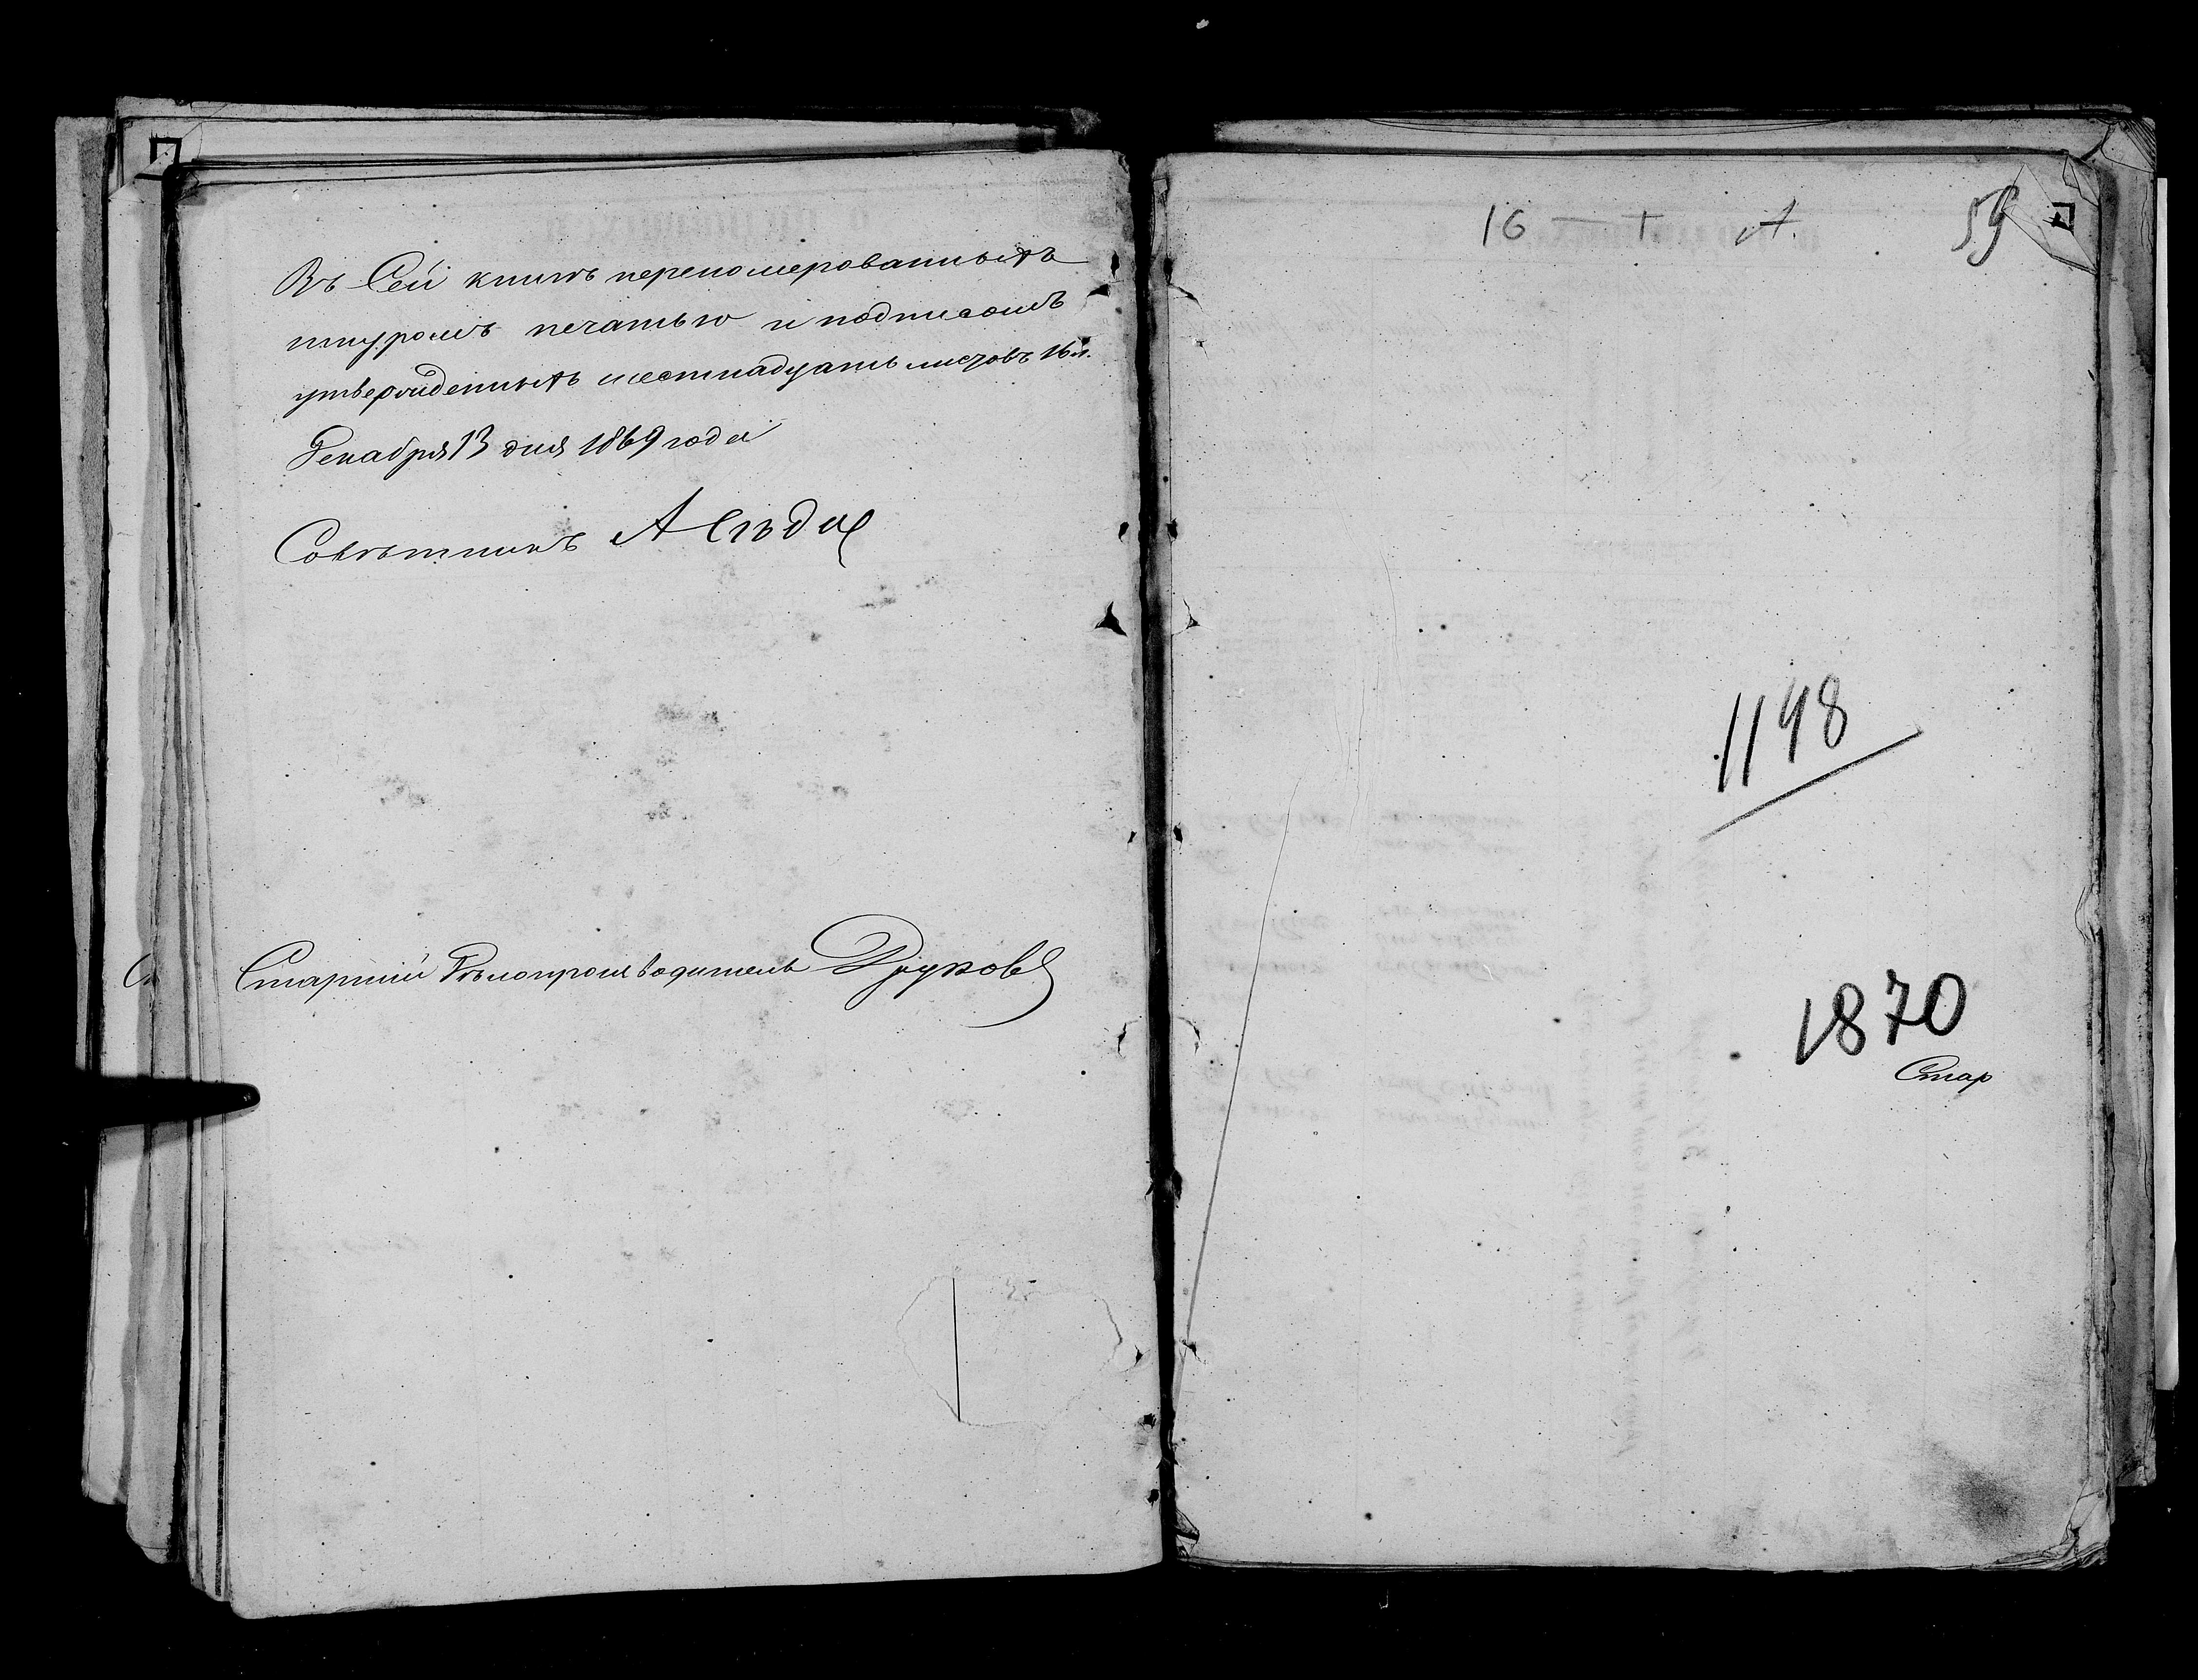 Въ Сей книгѣ перенομерованныхъ
шнуромъ печатью и подписомъ
утвержденныхъ шестнадцать листовъ 16 л.
Декабря 13 дня 1869 года
Совѣтникъ А
Старшій Дѣлопроизводитель
16 Т А.
59
1148
1870
Стар